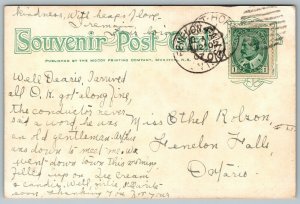 kindness, With heaps of love.
Souvenir Post Card
PUBLISHED BY THE MOORE PRINTING COMPANY,
FENELON FALLS
Well Dearie, I arrived
all O.K. got along fine,
the conductor never
said a word he was
an old gentleman.
Miss Ethel Robson,
Fenelon Falls,
Ontario.
was down to meet me. We
went down town this morning
filled up on Ice Cream
& candy. Well, will write
soon, thanking you for your